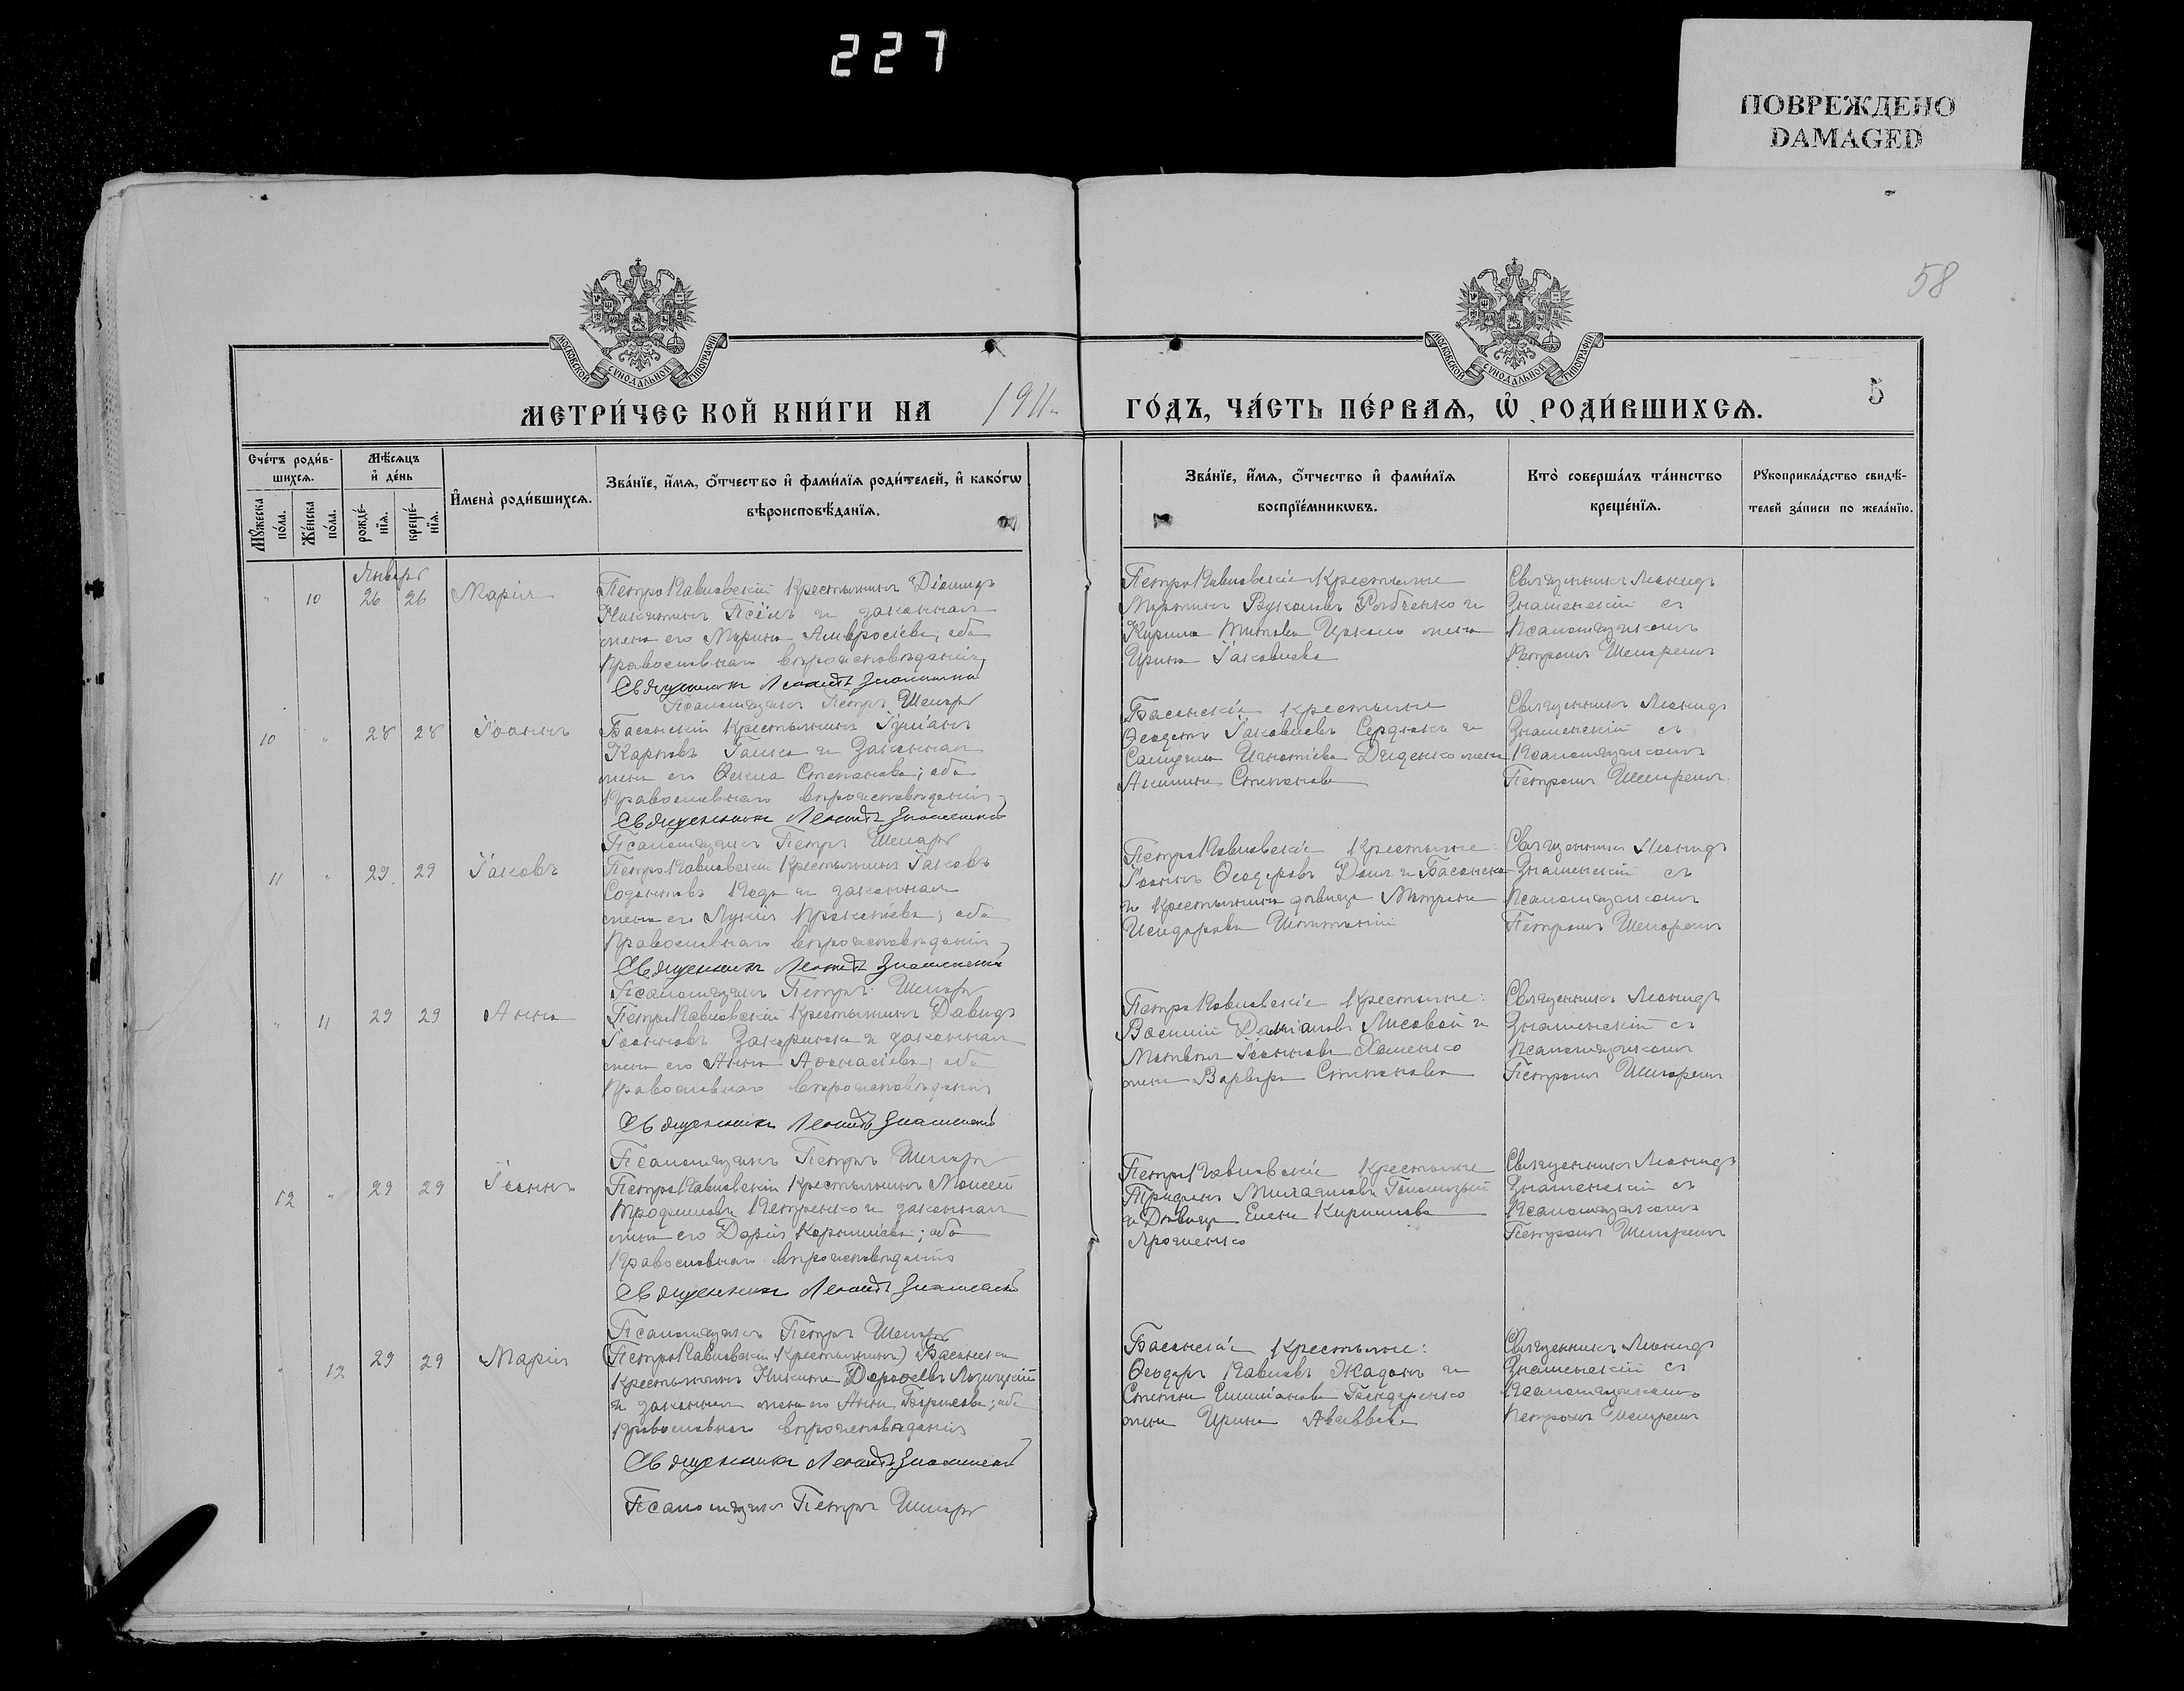 227
ПОВРЕЖДЕНО
DAMAGED
58
МОСКОВСКОЙ СѴНОДАЛЬНОЙ ТИПОГРАФІИ
МОСКОВСКОЙ СѴНОДАЛЬНОЙ ТИПОГРАФІИ
5
МЕТРИ́ЧЕС КОЙ КНИ́ГИ НА 1911
ГО́ДЪ, ЧА́СТЬ ПЕ́РВАѦ, Ѡ҆ РОДИ́ВШИХСѦ.
Сче́тъ роди́в-
шихсѧ.
Мѣ́сѧцъ
и҆ де́нь
Мꙋ́жеска
по́ла.
Же́нска
по́ла.
рожде́-
нїѧ.
креще́-
нїѧ.
И҆мена̀ роди́вшихсѧ.
Зва́нїе, и҆́мѧ, ѻ҆́тчество и҆ фами́лїѧ роди́телей, и҆ како́гѡ
вѣроисповѣ́данїѧ.
Зва́нїе, и҆́мѧ, ѻ҆́тчество и҆ фами́лїѧ
воспрїе́мникѡвъ.
Кто̀ соверша́лъ та́инство
креще́нїѧ.
Рꙋкоприкла́дство свидѣ́-
телей за́писи по жела́нїю.
Январь
" 10 26 26 Марія
Петро Павловскій Крестьянинъ Діомидъ
Никитинъ Псёлъ и законная
жена его Марина Амвросіева; оба
православнаго вѣроисповѣданія,
Священникъ Леонидъ Знаменскій
Псаломщикъ Петръ Шепарь
Петро Павловскіе Крестьяне
Мартинъ Вуколовъ Рябченко и
Кирила Титова жена
Ирина Іаковлева
Священникъ Леонидъ
Знаменскій съ
Псаломщикомъ
Петромъ Шепаремъ
10 " 28 28 Іоаннъ
Басанскій Крестьянинъ
Карповъ и Законная
жена его Ѳекла Степанова; оба
Православнаго вѣроисповѣданія,
Священникъ Леонидъ Знаменскій
Псаломщикъ Петръ Шепарь
Басанскіе крестьяне
Ѳеодотъ Іаковлевъ Сердюкъ и
Самуила Игнатіева Диденко жена
Степанова
Священникъ Леонидъ
Знаменскій съ
Псаломщикомъ
Петромъ Шепаремъ
11 " 29 29 Іаковъ
Петро Павловскій Крестьянинъ Іаковъ
и законная
жена его Лукія; оба
Православнаго вѣроисповѣданія,
Священникъ Леонидъ Знаменскій
Псаломщикъ Петръ Шепарь
Петро Павловскіе Крестьяне:
Іоаннъ Ѳеодоровъ и Басанска-
я Крестьянка дѣвица Матрона
Исидорова
Священникъ Леонидъ
Знаменскій съ
Псаломщикомъ
Петромъ Шепаремъ
" 11 29 29 Анна
Петро Павловскій Крестьянинъ Давидъ
Іоанновъ и законная
жена его Анна Аѳанасіева; оба
Православнаго вѣроисповѣданія
Священникъ Леонидъ Знаменскій
Псаломщикъ Петръ Шепарь
Петро Павловскіе Крестьяне:
Василій Даміановъ Лисовой и
Матвѣя Іоаннова Хоменко
жена Варвара Степанова
Священникъ Леонидъ
Знаменскій съ
Псаломщикомъ
Петромъ Шепаремъ
12 " 29 29 Іоаннъ
Петро Павловскій Крестьянинъ Моисей
Трофимовъ Петренко и законная
жена его Дарія Корниліева; оба
Православнаго вѣроисповѣданія
Священникъ Леонидъ Знаменскій
Псаломщикъ Петръ Шепарь
Петро Павловскіе Крестьяне
Михаиловъ
и Дѣвица Елена Кириллова
Ярошенко
Священникъ Леонидъ
Знаменскій съ
Псаломщикомъ
Петромъ Шепаремъ
" 12 29 29 Марія
(Петро Павловскій Крестьянинъ) Басанскій
Крестьянинъ Никита Дороѳеевъ Лозицкій
и законная жена его Анна Борисова; оба
православнаго вѣроисповѣданія
Священникъ Леонидъ Знаменскій
Псаломщикъ Петръ Шепарь
Басанскіе Крестьяне:
Ѳеодоръ Павловъ Жаданъ и
Бондаренко
жена Ирина
Священникъ Леонидъ
Знаменскій съ
Псаломщикомъ
Петромъ Шепаремъ